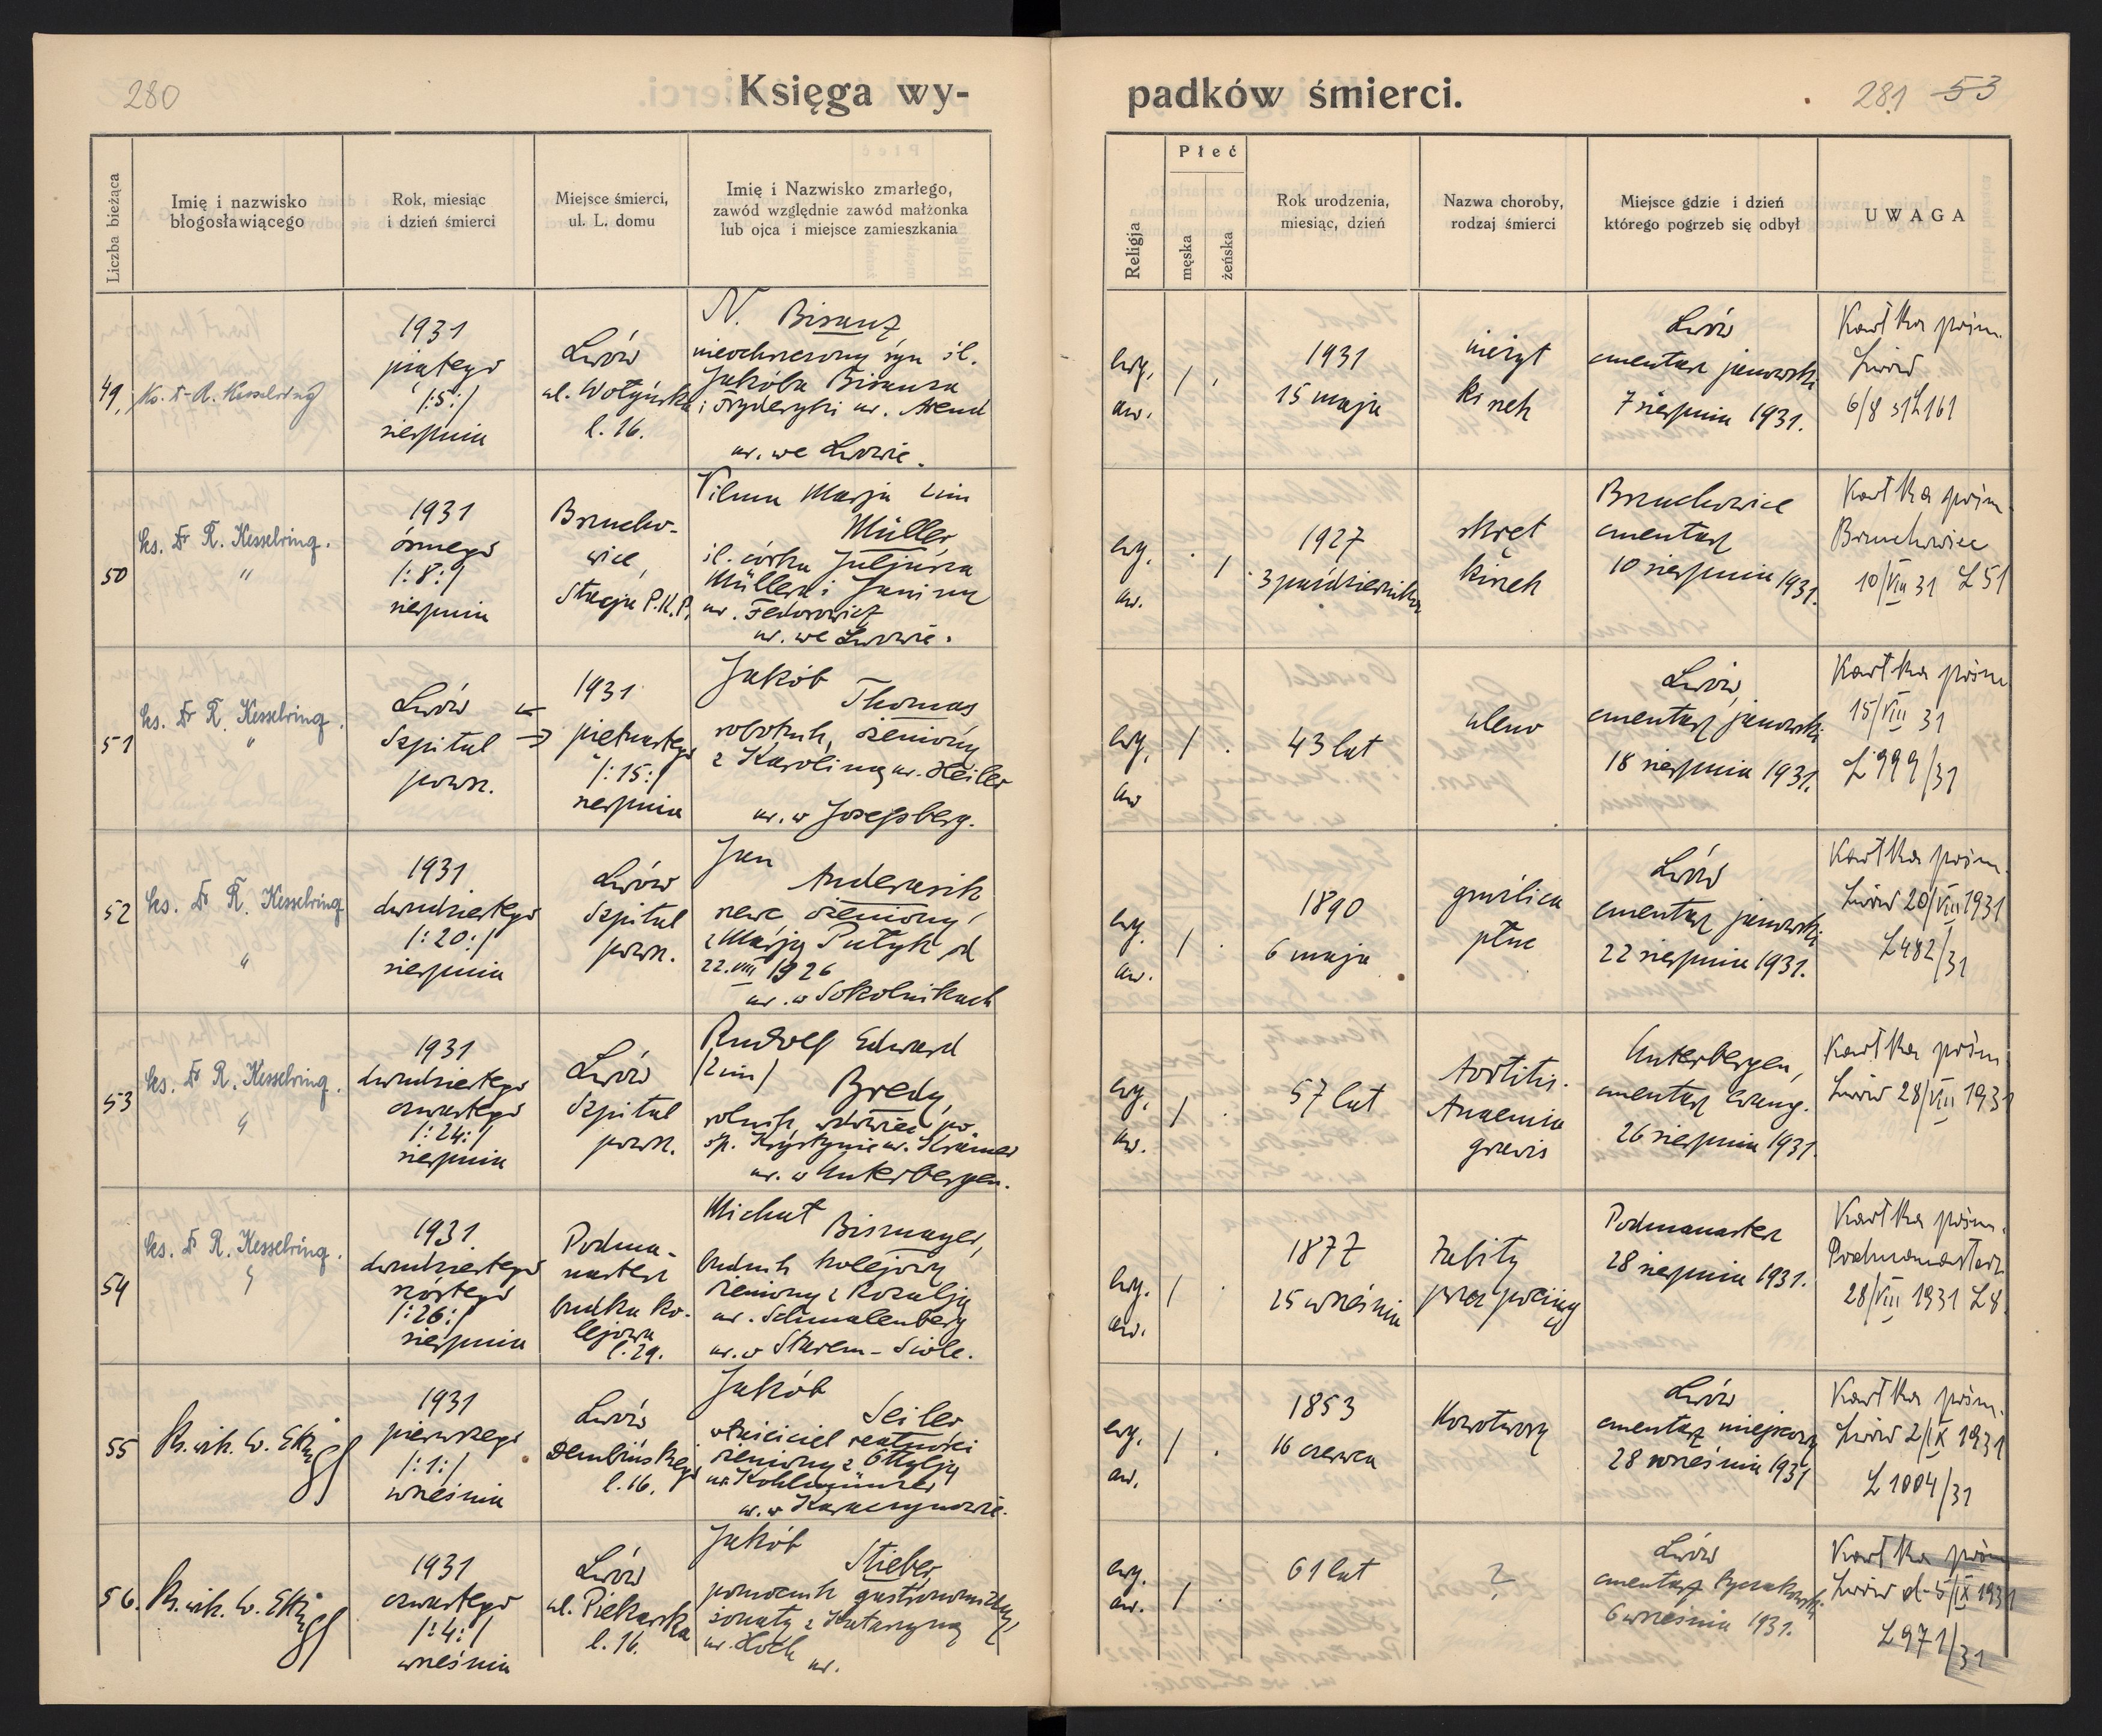 280
Księga wy-
padków śmierci.
281 53
Liczba bieżąca
Imię i nazwisko
błogosławiącego
Rok, miesiąc
i dzień śmierci
Miejsce śmierci,
ul. L. domu
Imię i Nazwisko zmarłego,
zawód względnie zawód małżonka
lub ojca i miejsce zamieszkania
Religja
Płeć
męska
żeńska
Rok urodzenia,
miesiąc, dzień
Nazwa choroby,
rodzaj śmierci
Miejsce gdzie i dzień
którego pogrzeb się odbył
UWAGA
49,
Ks. Dr R. Kesselring
1931
piątego
/:5:/
sierpnia
Lwów
ul. Wołyńska
l. 16.
N. Bisanz
nieochrzczony syn śl.
Jakóba Bisanza
i Fryderyki ur. Arend
ur. we Lwowie.
ewg.
aw.
/ .
1931
15 maja
nieżyt
kiszek
Lwów
cmentarz janowski
7 sierpnia 1931.
Kartka pośm.
Lwów
6/8 31 L 161
50
Ks. Dr R. Kesselring.
"
1931
ósmego
/:8:/
sierpnia
Brzucho-
wice,
Stacja P.K.P.
Vilma Marja 2im
Müller
śl. córka Juljusza
Müllera i Janiny
ur. Fedorowicz
ur. we Lwowie.
ewg.
aw.
. /
1927
3 października
skręt
kiszek
Brzuchowice
cmentarz
10 sierpnia 1931.
Kartka pośm.
Brzuchowice
10/VIII 31 L 51
51
Ks. Dr R. Kesselring.
"
Lwów
Szpital
powsz.
1931
piętnastego
/:15:/
sierpnia
Jakób
Thomas
robotnik, ożeniony
z Karoliną ur. Heiler
ur. w Josefsberg.
ewg.
aw
/ .
43 lat
Lwów,
cmentarz janowski
18 sierpnia 1931.
Kartka pośm
15/VIII 31
L 999/31
52
Ks. Dr R. Kesselring
"
1931
dwudziestego
/:20:/
sierpnia
Lwów
Szpital
powsz.
Jan
Anderasik
ożeniony
z Marją Putyk od
22.VIII 1926
ur. w Sokolnikach
ewg.
aw.
/ .
1890
6 maja
gruźlica
płuc
Lwów
cmentarz janowski
22 sierpnia 1931.
Kartka pośm.
Lwów 20/VIII 1931
L 482/31
53
Ks. Dr R. Kesselring.
"
1931
dwudziestego
czwartego
/:24:/
sierpnia
Lwów
Szpital
powsz.
Rudolf Edward
/2im/
Bredy,
rolnik, wdowiec po
śp. Krystynie ur. Krämer
ur. w Unterbergen.
ewg.
aw.
/ .
57 lat
Aortitis.
Anaemia
gravis
Unterbergen,
cmentarz ewang.
26 sierpnia 1931.
Kartka pośm
Lwów 28/VIII 1931
54
Ks. Dr R. Kesselring.
"
1931
dwudziestego
szóstego
/:26:/
sierpnia
Podma-
nasterz
budka ko-
lejowa
l. 29.
Michał
Bismayer,
budnik kolejowy
żeniony z Rozalją
ur. Schmalenberg
ur. w Starem-Siole.
ewg.
aw.
/ .
1877
25 września
Zabity
przez pociąg
Podmanasterz
28 sierpnia 1931.
Kartka pośm.
Podmanasterz
28/VIII 1931 L 8
55
Ks. wik. W. Ettinger
1931
pierwszego
/:1:/
września
Lwów
Dembińskiego
l. 16.
Jakób
Seiler
właściciel realności
żeniony z Ottylją
ur. Kohlmünzer
ur. w Karaczynowie.
ewg.
aw.
/ .
1853
16 czerwca
Nowotwory
Lwów
cmentarz miejscowy
28 września 1931
Kartka pośm.
Lwów 2/IX 1931
L 1004/31
56.
Ks. wik. W. Ettinger
1931
czwartego
/:4:/
września
Lwów
ul. Piekarska
l. 16.
Jakób
Stieber,
pomocnik gastronomiczny,
żonaty z Katarzyną
ur. Hoch
ur.
ewg.
aw.
/ .
61 lat
?
Lwów
cmentarz Łyczakowski
6 września 1931.
Kartka pośm
Lwów d. 5/IX 1931
L 971/31